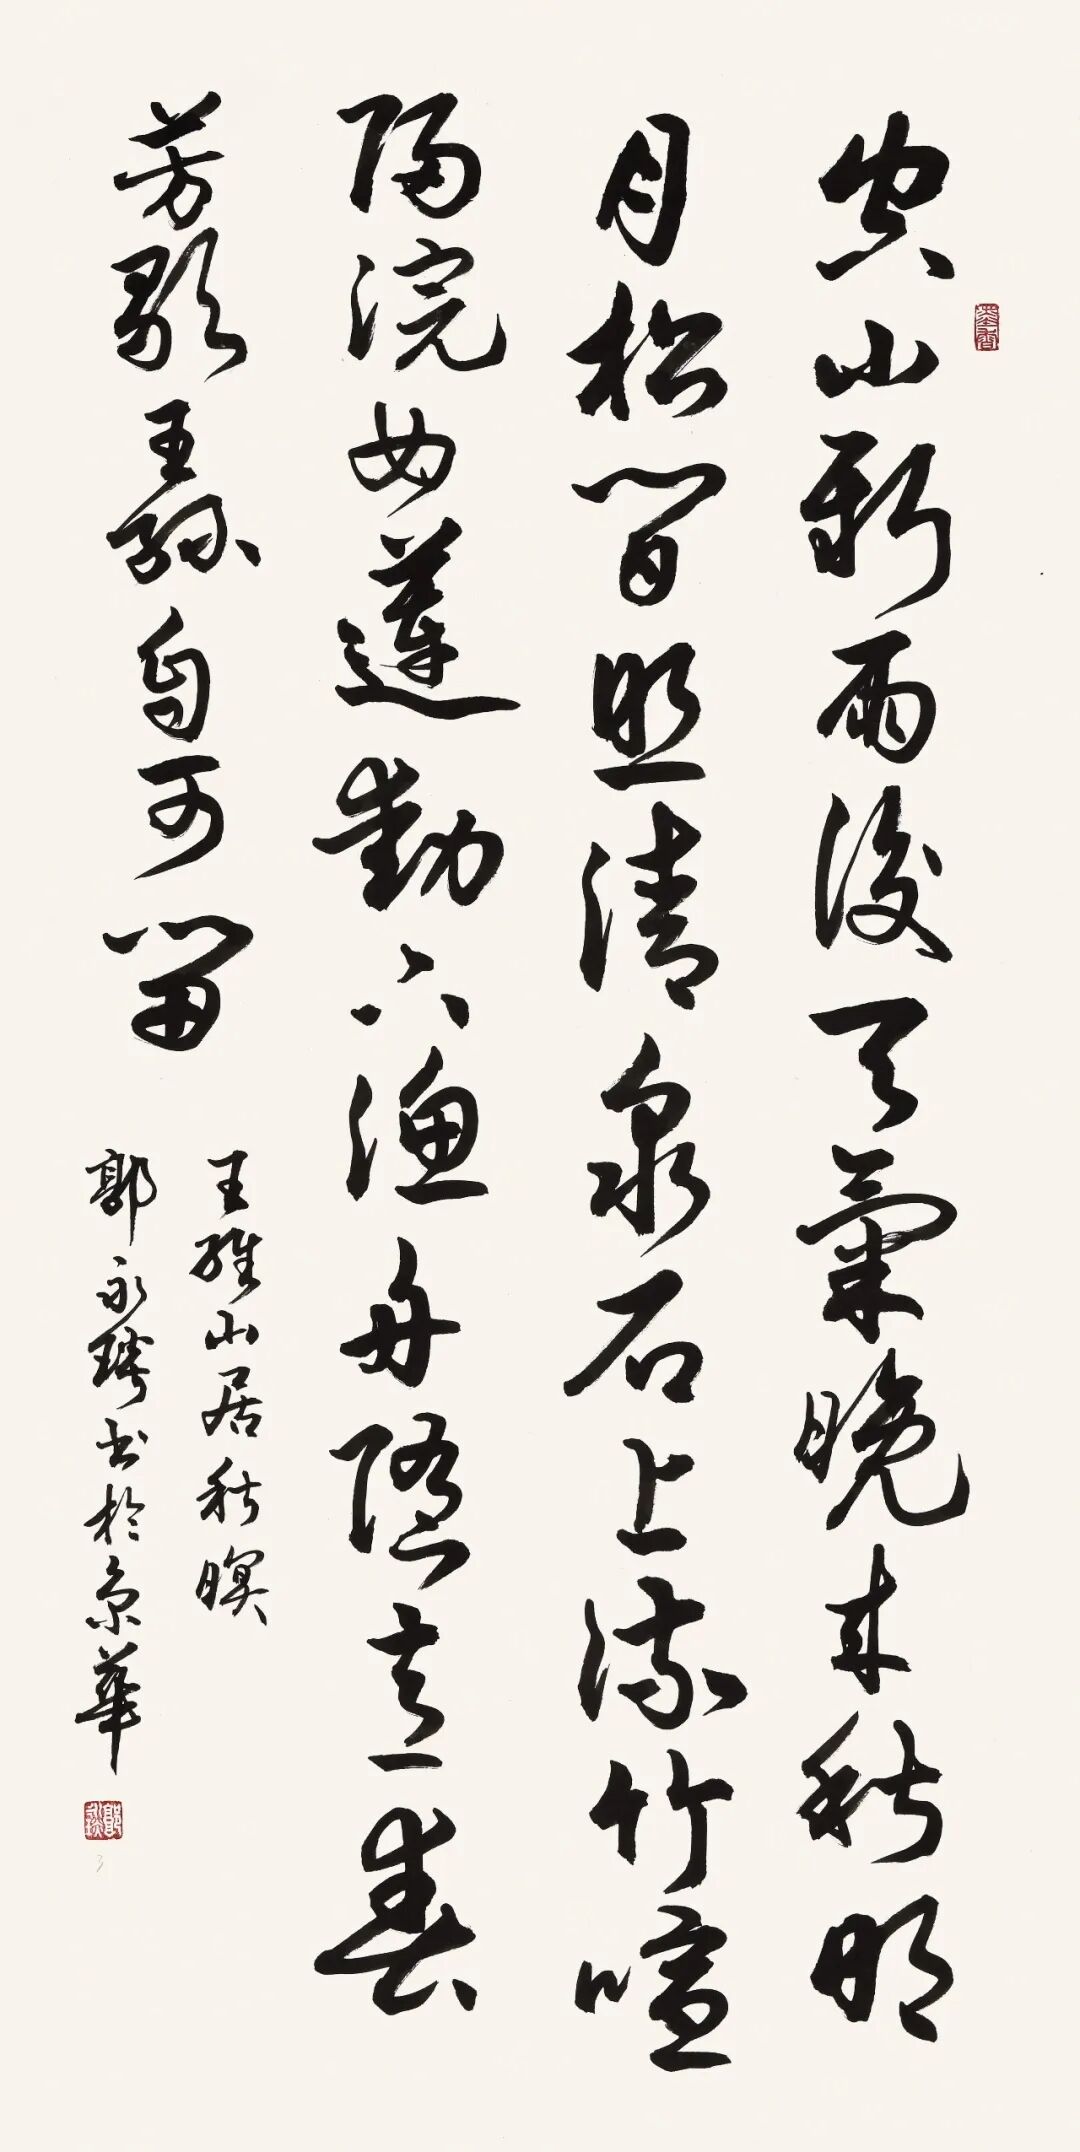 空山新雨後天氣晚来秋明
月松間照清泉石上流竹喧
歸浣女蓮動下漁舟隨意春
芳歇王孫自可留
王維山居秋暝
郭永书於京華